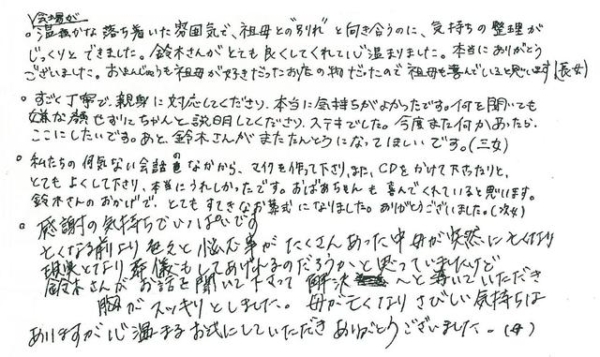 会場が
○温かな落ち着いた雰囲気で、祖母との"別れ"と向き合うのに、気持ちの整理が
じっくりとできました。鈴木さんがとても良くしてくれて心温まりました。本当にありがとう
ございました。おまんじゅうも祖母が好きだったお店の物だったので祖母も喜んでいると思います(長女)
○すごく丁寧で、親身に対応してくださり、本当に気持ちがよかったです。何を聞いても
嫌な顔せずにちゃんと説明してくださり、ステキでした。今度また何かあったら、
ここにしたいです。あと、鈴木さんがまたたんとうになってほしいです。(三女)
○私たちの何気ない会話のなかから、マイクを作って下さり、また、CDをかけて下さったりと、
とてもよくして下さり、本当にうれしかったです。おばあちゃんも喜んでくれていると思います。
鈴木さんのおかげで、とてもすてきなお葬式になりました。ありがとうございました。(次女)
○感謝の気持ちでいっぱいです
亡くなる前より色々と悩む事がたくさんあった中母が突然に亡くなり
現実となり葬儀もしてあげれるのだろうかと思っていましたけど
鈴木さんがお話を聞いて下さって解決へと導いていただき
胸がスッキリとしました。母が亡くなりさびしい気持ちは
ありますが心温まるお式にしていただきありがとうございました。(母)